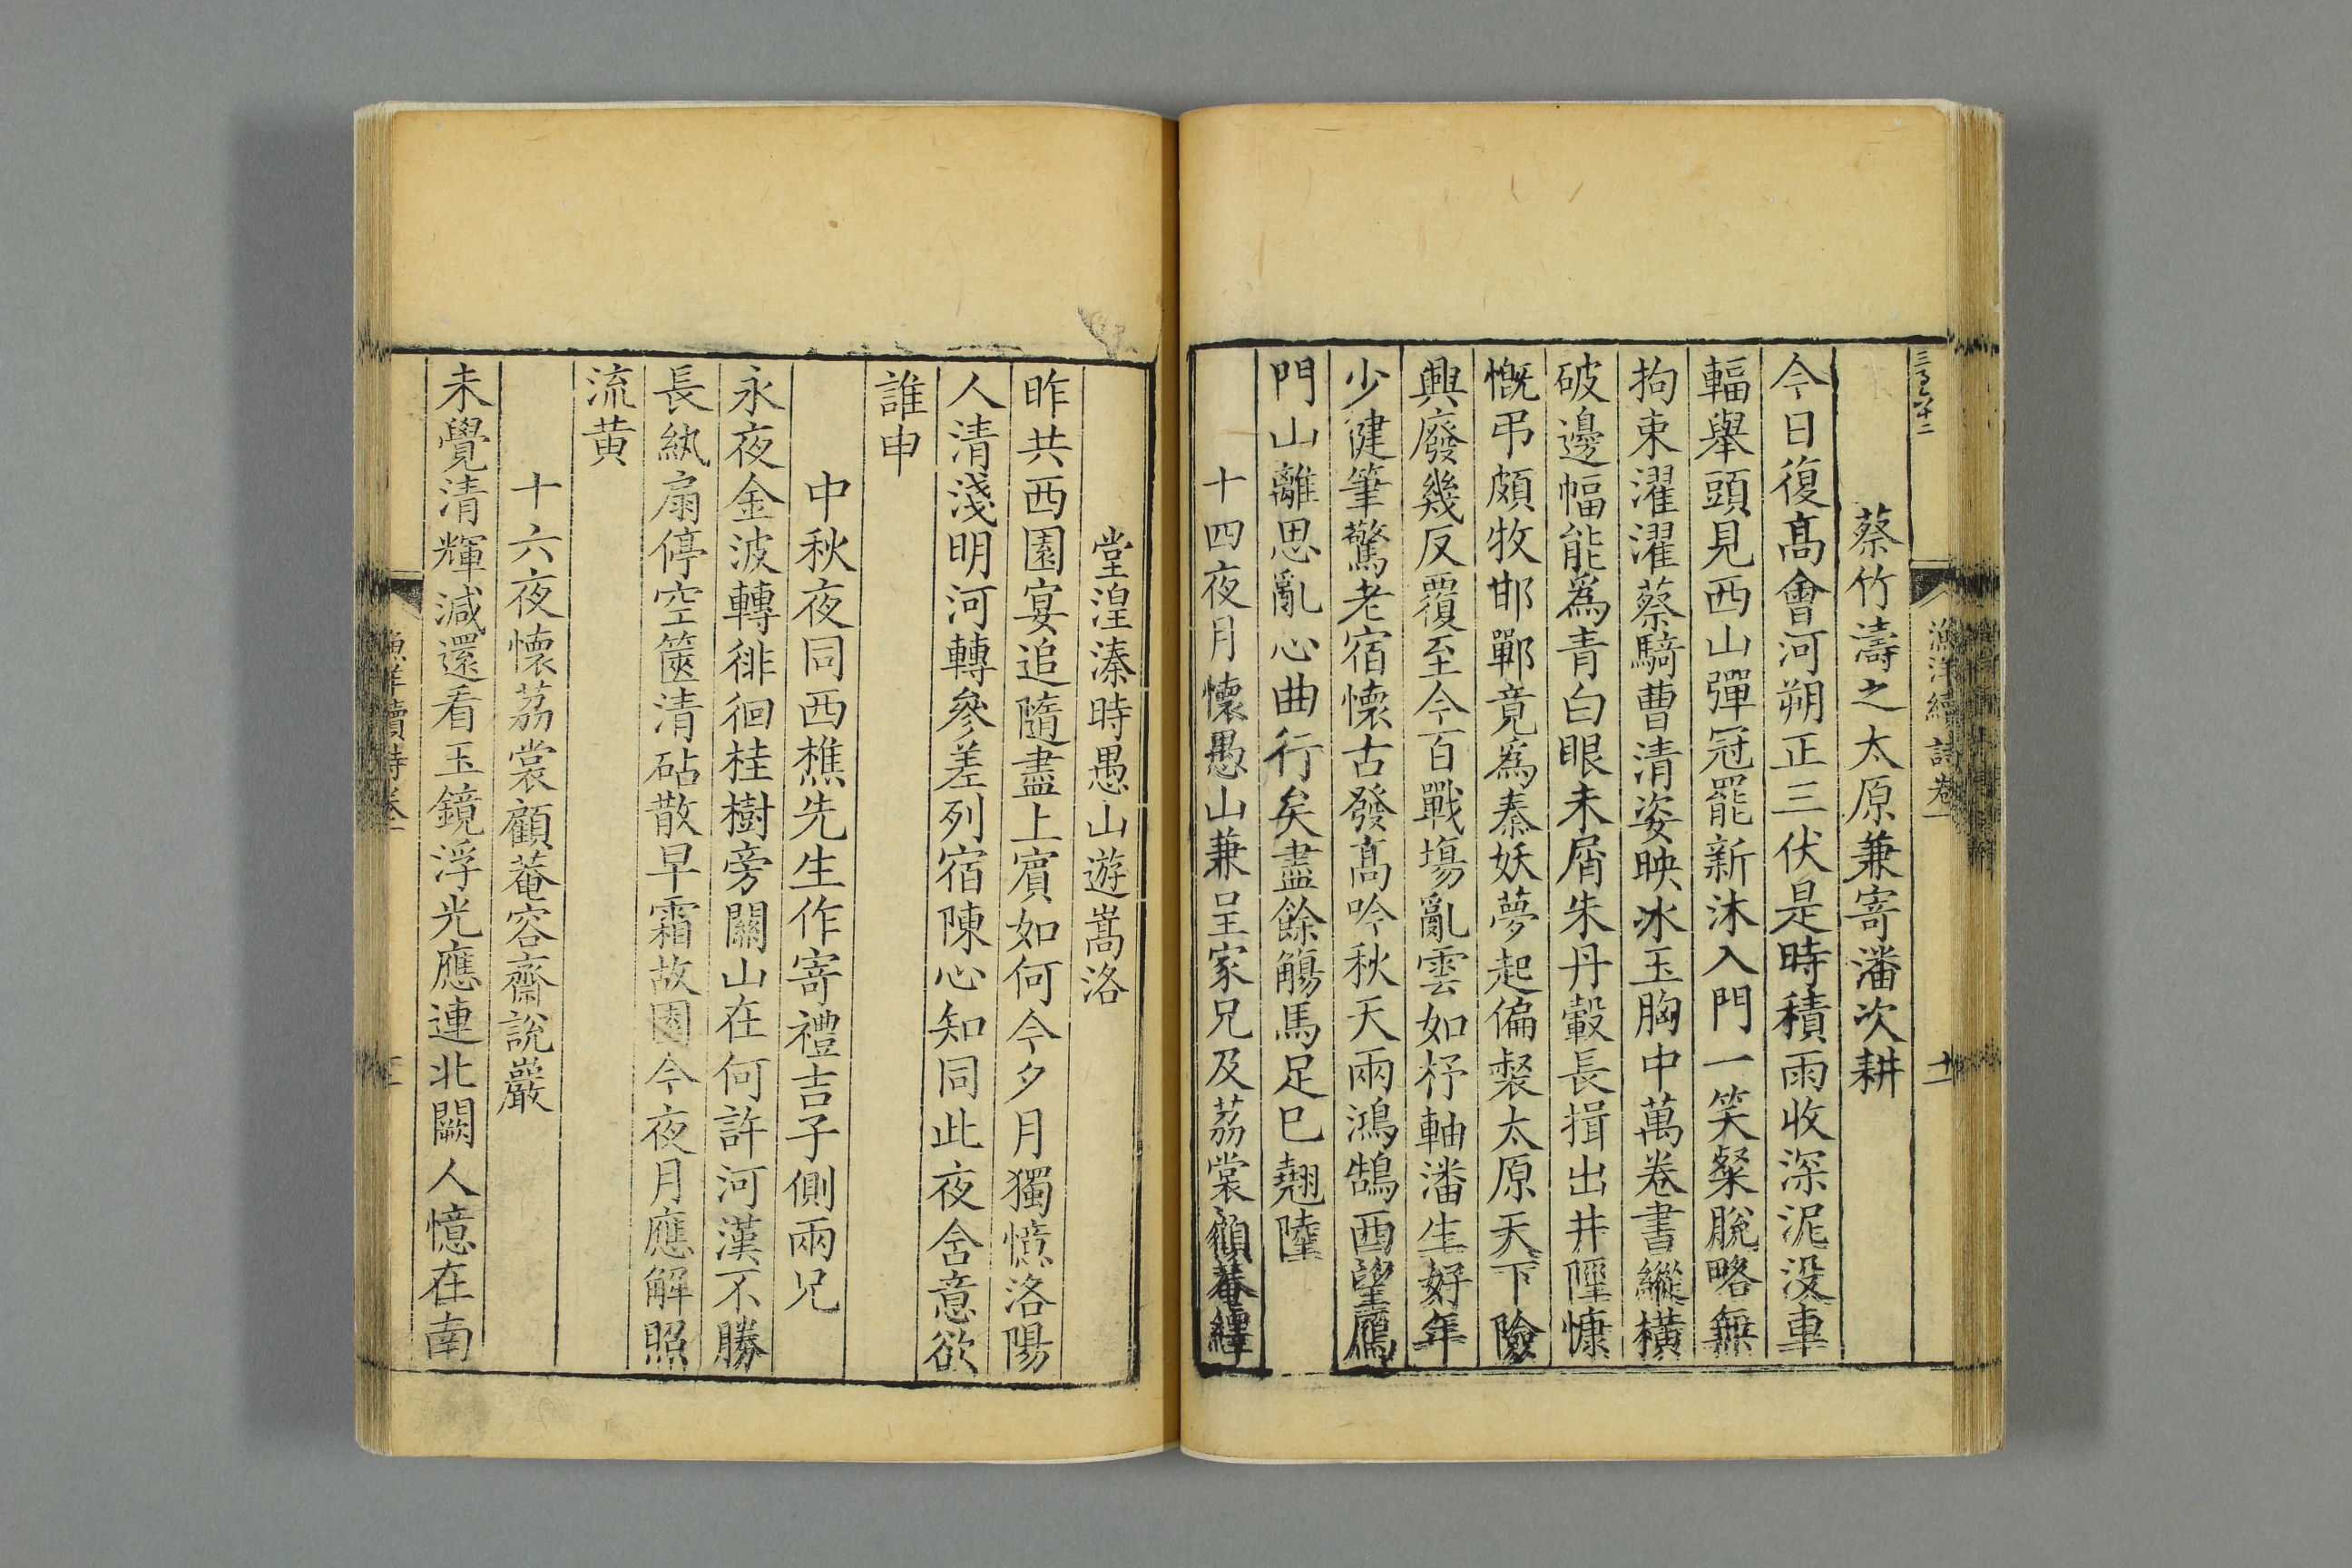 蔡竹濤之太原兼寄潘次耕
今日復髙會河朔正三伏是時積雨收深泥没車
輻舉頭見西山彈冠罷新沐入門一笑粲脫略無
拘束濯濯蔡騎曹清姿映冰玉胸中萬卷書縱橫
破邊幅能爲青白眼未屑朱丹轂長揖出井陘慷
慨弔頗牧邯鄲竟爲秦妖夢起偏裻太原天下險
興廢幾反覆至今百戰塲亂雲如杼軸潘生好年
少健筆驚老宿懷古發髙吟秋天兩鴻鵠西望鴈
門山離思亂心曲行矣盡餘觴馬足已翹陸
十四夜月懷愚山兼呈家兄及荔裳顧菴繹
堂湟溱時愚山遊嵩洛
昨共西園宴追隨盡上賔如何今夕月獨憶洛陽
人清淺明河轉參差列宿陳心知同此夜含意欲
誰申
中秋夜同西樵先生作寄禮吉子側兩兄
永夜金波轉徘徊桂樹旁關山在何許河漢不勝
長紈扇停空篋清砧散早霜故園今夜月應解照
流黄
十六夜懷荔裳顧菴容齋說巖
未覺清輝減還看玉鏡浮光應連北闕人憶在南
漁洋續詩卷一
十一
漁洋續詩卷一